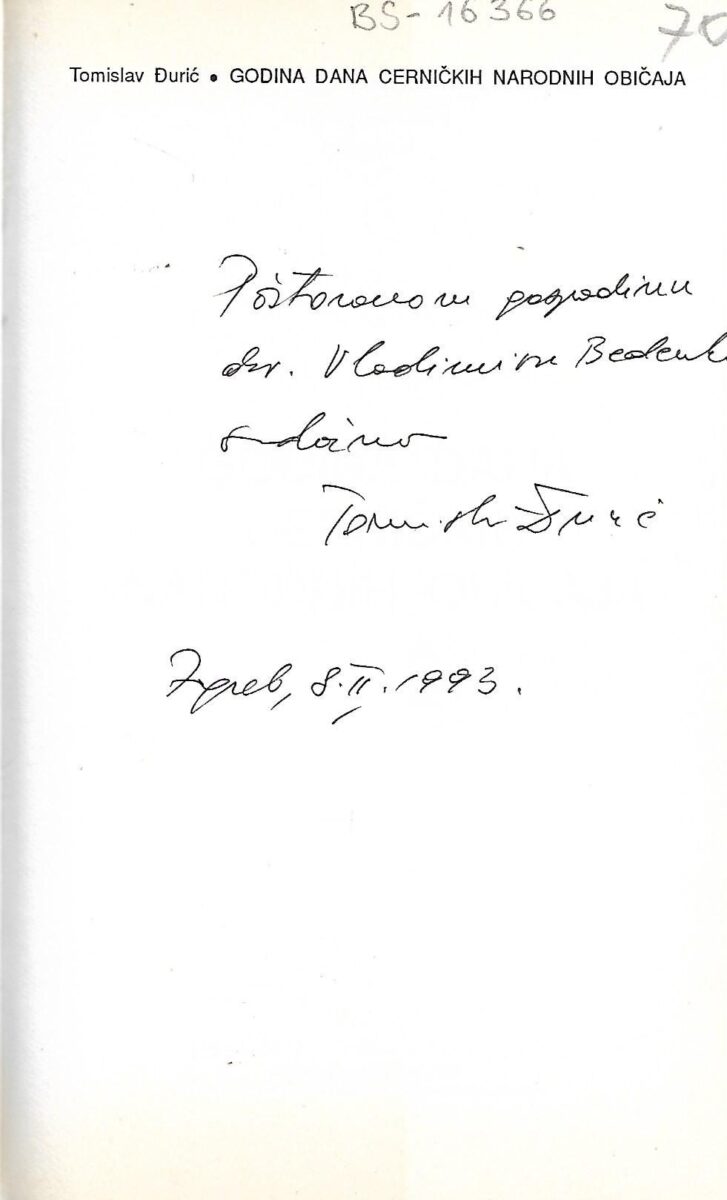 BS-16366
70
Tomislav Đurić • GODINA DANA CERNIČKIH NARODNIH OBIČAJA
Poštovanom gospodinu
dr. Vladimiru Bedenk
srdačno
Tomislav Đurić
Zagreb, 8.II.1993.